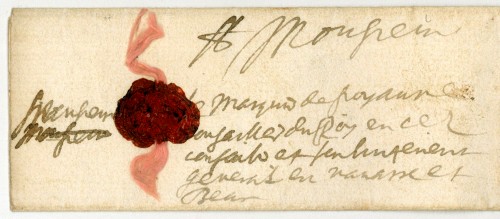 A Monsieur
Monsieur
le Marquis de poyanne
conseiller du Roy en ces
conseils et son lieutenant
general en navarre et
Bearn